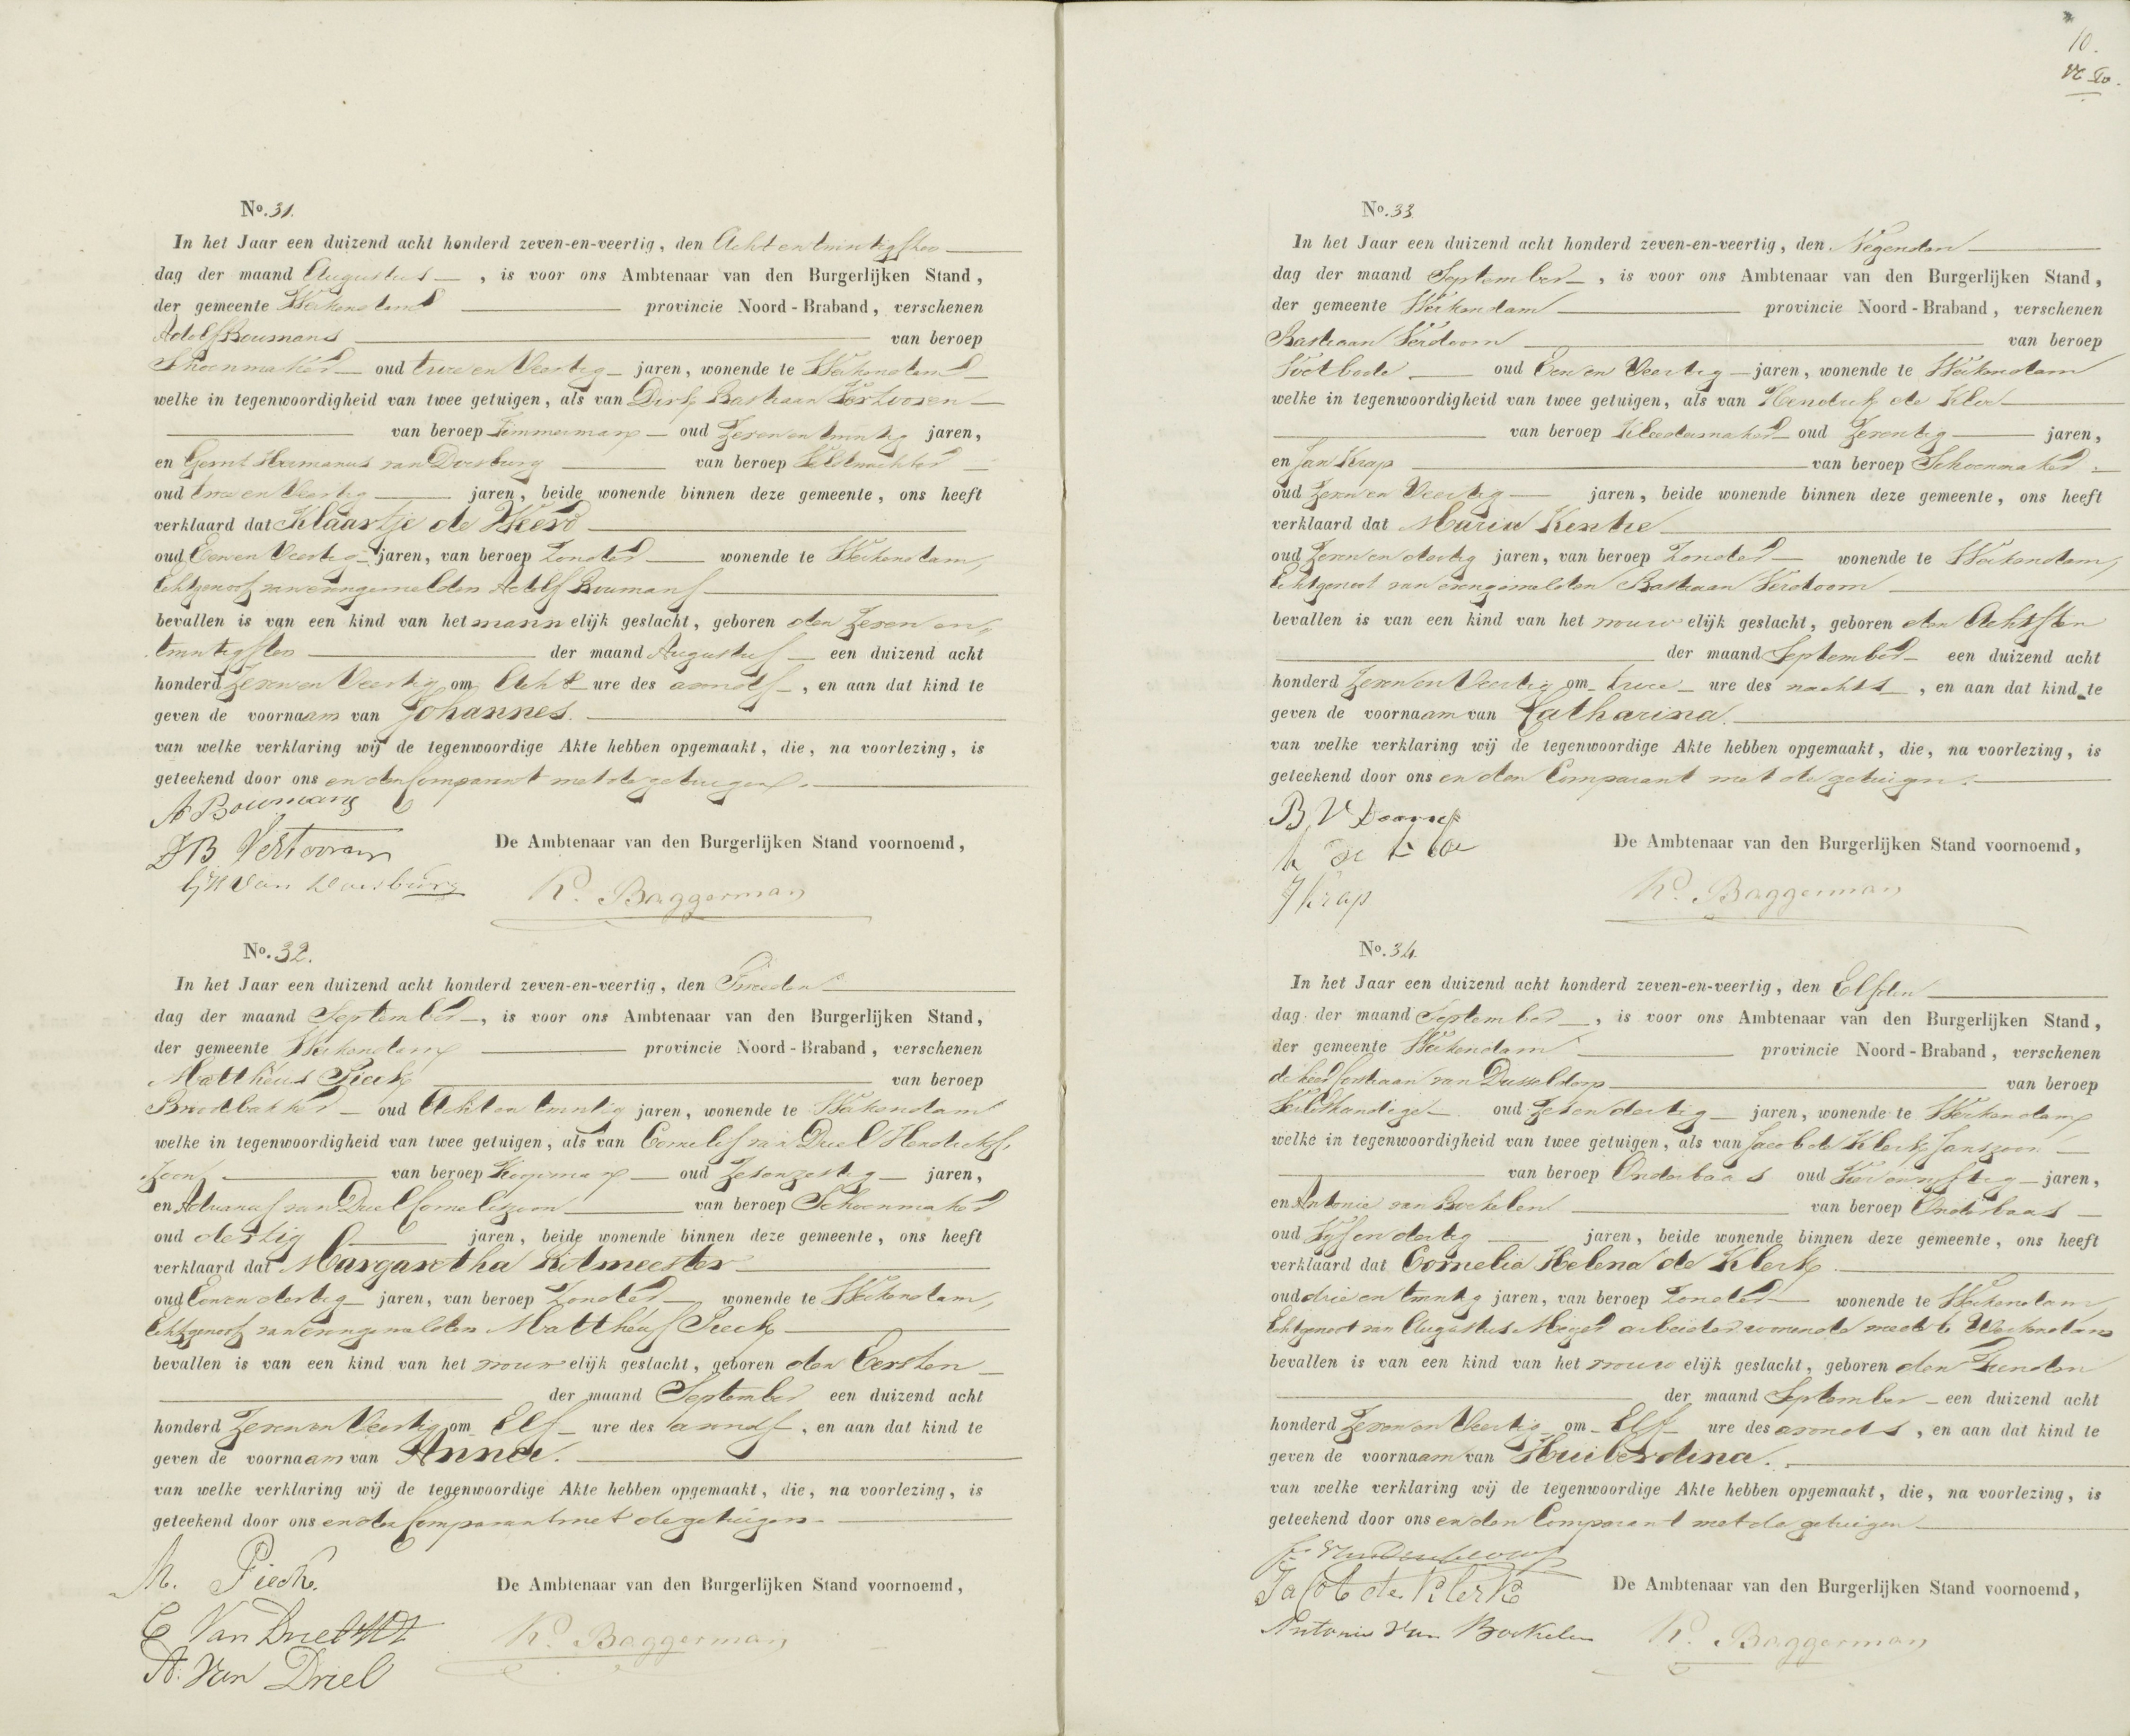 No. 31.
In het Jaar een duizend acht honderd zeven-en-veertig, den Acht en twintigsten
dag der maand Augustus, is voor ons Ambtenaar van den Burgerlijken Stand,
der gemeente Werkendam provincie Noord-Braband, verschenen
Adolf Boumans van beroep
Schoenmaker oud twee en Veertig jaren, wonende te Werkendam
welke in tegenwoordigheid van twee getuigen, als van Dirk Bastiaan Vertooren
van beroep Timmerman oud Zeven en twintig jaren,
en Gerrit Hermanus van Doesburg van beroep Veldwachter
oud twee en Veertig jaren, beide wonende binnen deze gemeente, ons heeft
verklaard dat Klaartje de Weerd
oud Een en Veertig jaren, van beroep Zonder wonende te Werkendam,
Echtgenoot van evengemelden Adolf Boumans
bevallen is van een kind van het mannelijk geslacht, geboren den Zeven en
twintigsten der maand Augustus een duizend acht
honderd Zeven en Veertig om Acht ure des avonds, en aan dat kind te
geven de voornaam van Johannes.
van welke verklaring wij de tegenwoordige Akte hebben opgemaakt, die, na voorlezing, is
geteekend door ons en den Comparant met de getuigen.
A Boumans
DB Vertooren
GH van Doesburg
De Ambtenaar van den Burgerlijken Stand voornoemd,
K. Baggerman
No. 32.
In het Jaar een duizend acht honderd zeven-en-veertig, den Tweeden
dag der maand September, is voor ons Ambtenaar van den Burgerlijken Stand,
der gemeente Werkendam provincie Noord-Braband, verschenen
Mattheus Pieck van beroep
Broodbakker oud Acht en twintig jaren, wonende te Werkendam
welke in tegenwoordigheid van twee getuigen, als van Cornelis van Driel Hendriks
Zoon van beroep Koopman oud Zes en zestig jaren,
en Adrianus van Driel Corneliszoon van beroep Schoenmaker
oud dertig jaren, beide wonende binnen deze gemeente, ons heeft
verklaard dat Margaretha Ritmeester
oud Een en dertig jaren, van beroep Zonder wonende te Werkendam,
Echtgenoot van evengemelden Mattheus Pieck
bevallen is van een kind van het vrouwelijk geslacht, geboren den Eersten
der maand September een duizend acht
honderd Zeven en Veertig om Elf ure des avonds, en aan dat kind te
geven de voornaam van Anna.
van welke verklaring wij de tegenwoordige Akte hebben opgemaakt, die, na voorlezing, is
geteekend door ons en den Comparant met de getuigen
M. Pieck.
C Van Driel
A. Van Driel
De Ambtenaar van den Burgerlijken Stand voornoemd,
K. Baggerman
10.
No. 33
In het Jaar een duizend acht honderd zeven-en-veertig, den Negenden
dag der maand September, is voor ons Ambtenaar van den Burgerlijken Stand,
der gemeente Werkendam provincie Noord-Braband, verschenen
Bastiaan Verdoorn van beroep
Voetbode oud Een en Veertig jaren, wonende te Werkendam
welke in tegenwoordigheid van twee getuigen, als van Hendrik de Kloe
van beroep Kleedermaker oud Zeventig jaren,
en Jan Krap van beroep Schoenmaker
oud Zeven en Veertig jaren, beide wonende binnen deze gemeente, ons heeft
verklaard dat Maria Kentie
oud Zeven en dertig jaren, van beroep Zonder wonende te Werkendam,
Echtgenoot van evengemelden Bastiaan Verdoorn
bevallen is van een kind van het vrouwelijk geslacht, geboren den Achtsten
der maand September een duizend acht
honderd Zeven en Veertig om twee ure des nachts, en aan dat kind te
geven de voornaam van Catharina.
van welke verklaring wij de tegenwoordige Akte hebben opgemaakt, die, na voorlezing, is
geteekend door ons en den Comparant met de getuigen.
J Krap
De Ambtenaar van den Burgerlijken Stand voornoemd,
K. Baggerman
No. 34.
In het Jaar een duizend acht honderd zeven-en-veertig, den Elfden
dag der maand September, is voor ons Ambtenaar van den Burgerlijken Stand,
der gemeente Werkendam provincie Noord-Braband, verschenen
de heer van Dusseldorp van beroep
oud Zes en dertig jaren, wonende te Werkendam
welke in tegenwoordigheid van twee getuigen, als van Jacob de Klerk Janszoon
van beroep Onderbaas oud Vier en vyftig jaren,
en Antonie van Bockelen van beroep Onderbaas
oud Vyf en dertig jaren, beide wonende binnen deze gemeente, ons heeft
verklaard dat Cornelia Helena de Klerk
oud drie en twintig jaren, van beroep Zonder wonende te Werkendam,
Echtgenoot van Augustus Meyer arbeider wonende mede te Werkendam
bevallen is van een kind van het vrouwelijk geslacht, geboren den Tienden
der maand September een duizend acht
honderd Zeven en Veertig om Elf ure des avonds, en aan dat kind te
geven de voornaam van Huiberdina.
van welke verklaring wij de tegenwoordige Akte hebben opgemaakt, die, na voorlezing, is
geteekend door ons en den Comparant met de getuigen
Jacob de Klerk
Antonie Van Bockelen
De Ambtenaar van den Burgerlijken Stand voornoemd,
K. Baggerman